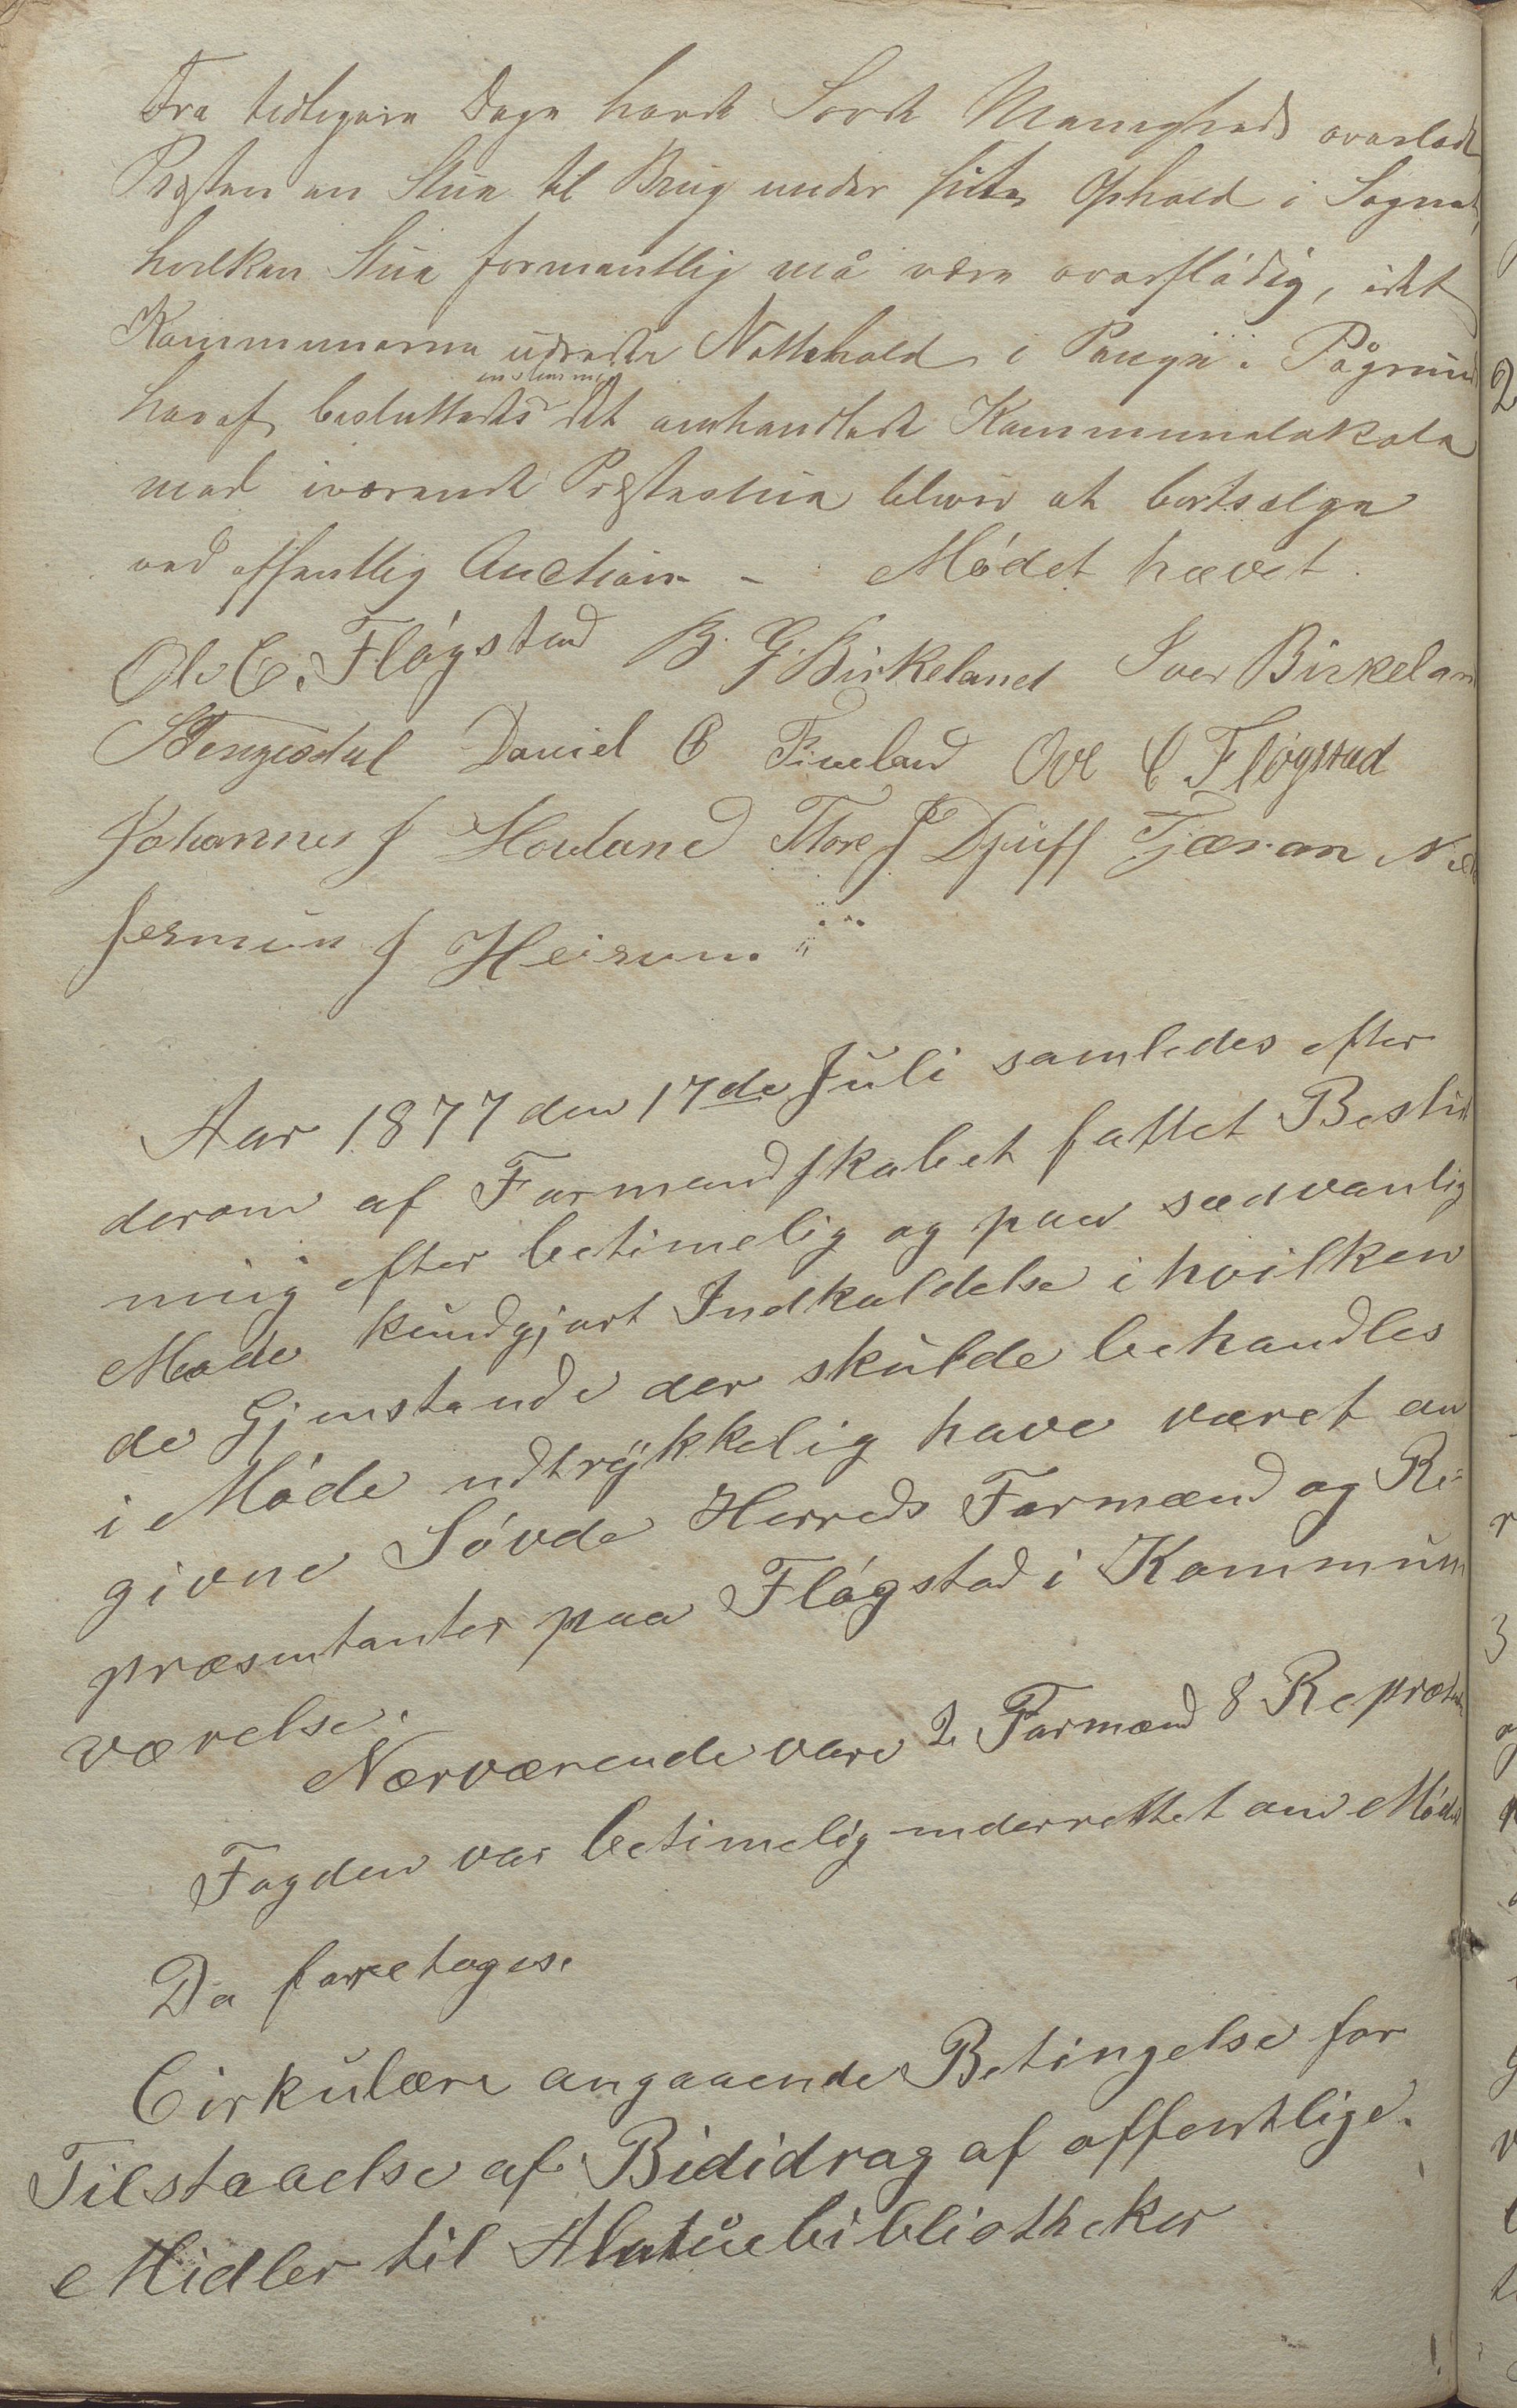 Fra tidligere Dage havde Søvde Menigheds overladt
Præsten en Stue til Brug under sit Ophold i Sognet,
hvilken Stue formentlig må være overflødig, idet
Kommunerne udreder Nattehold i Penge. Pågrund
enstemmig
heraf besluttedes det omhandlede Kommunelokale
med iværende Præstestue bliver at bortsælge
ved offentlig Auction - Mødet hævet.
Ole C. Fløgstad B. G. Birkeland Iver Birkelan
Daniel C Fineland Ove C Fløgstad
Johannes J Hovland Tore J Djuff Tjæran
Jermun J Heirum.
Aar 1877 den 17de Juli samledes efter
derom af Formandskabet fattet Beslut
ning efter betimelig og paa sædvanlig
Maade kundgjort Indkaldelse i hvilken
de Gjenstande der skulde behandles
i Møde udtrykkelig have været an
givne Søvde Herreds Formænd og Re-
præsentanter paa Fløgstad i Kommun
værelse.
Nærværende vare 2 Formænd 8 Repræs
Fogden var betimelig underrettet om Møde
Da foretoges.
Cirkulære angaaende Betingelse for
Tilstaaelse af Bididrag af offentlige
Midler til Almuebibliotheker